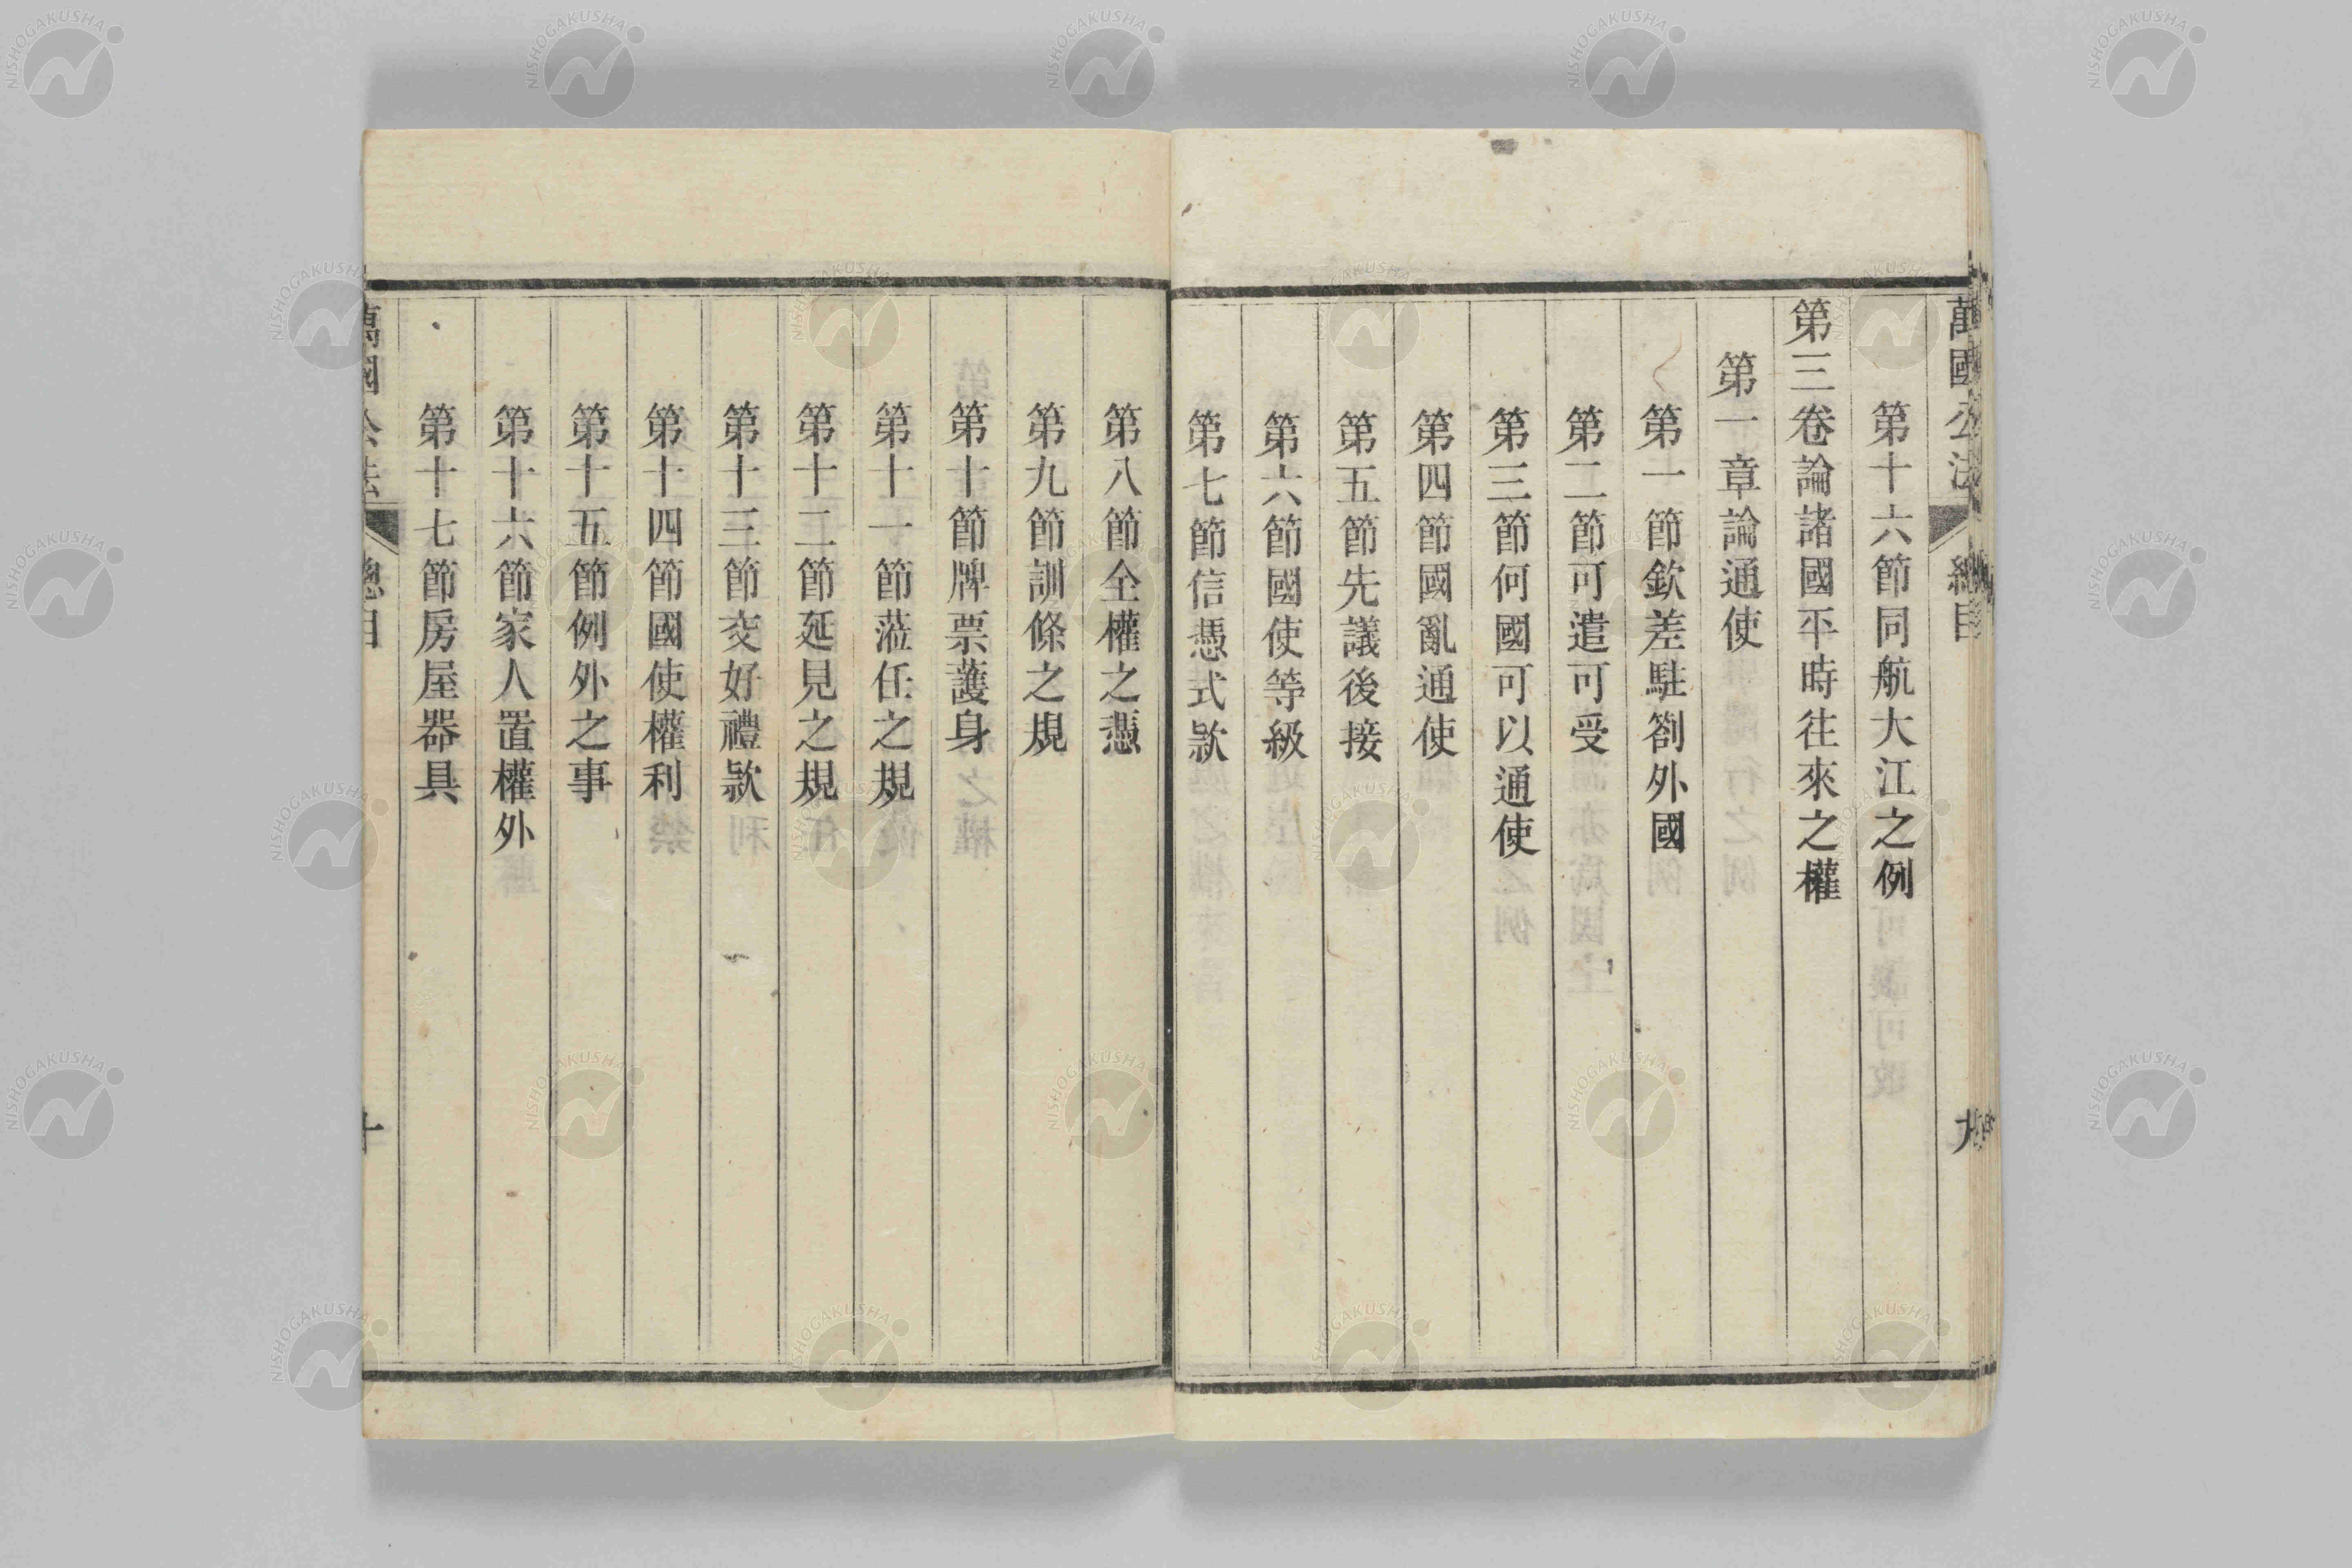 萬國公法 總目 九
第十六節同航大江之例
第三卷論諸國平時往來之權
第一章論通使
第一節欽差駐劄外國
第二節可遣可受
第三節何國可以通使
第四節國亂通使
第五節先議後接
第六節國使等級
第七節信憑式款
第八節全權之憑
第九節訓條之規
第十節牌票護身
第十一節蒞任之規
第十二節延見之規
第十三節交好禮款
第十四節國使權利
第十五節例外之事
第十六節家人置權外
第十七節房屋器具
萬國公法 總目 十
NISHOGAKUSHA